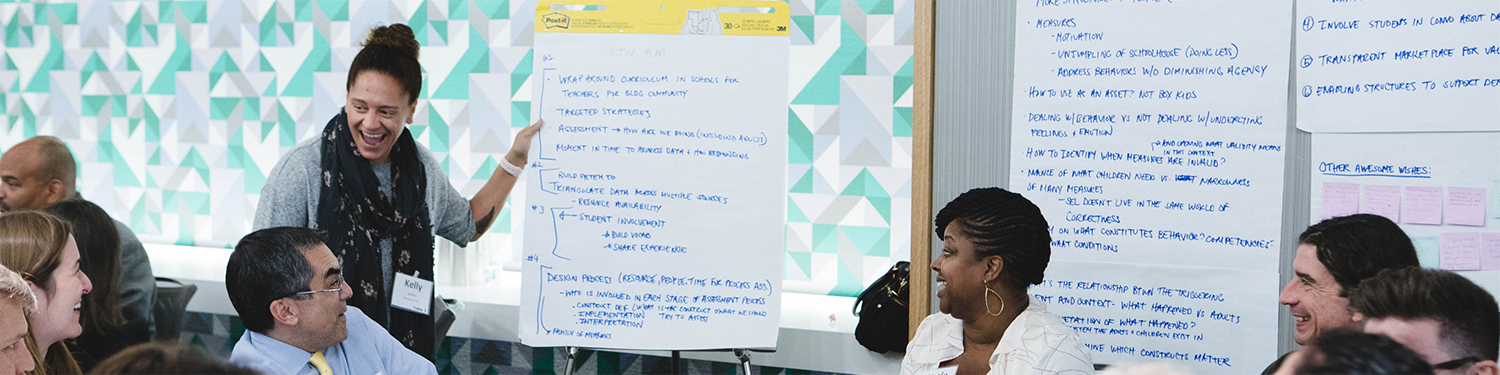 Post-it
30
3M
ACTION PLAN
#1
• WRAP AROUND CURRICULUM IN SCHOOLS FOR
TEACHERS FOR BLDG COMMUNITY
• TARGETED STRATEGIES
• ASSESSMENT → HOW ARE WE DOING (INCLUDING ADULTS)
MOMENT IN TIME TO ADDRESS DATA + HOW RESPONDING
#2
BUILD SYSTEM TO
TRIANGULATE DATA ACROSS MULTIPLE SOURCES
- RESOURCE AVAILABILITY
#3
STUDENT INVOLVEMENT
→ BUILD VOCAB
→ SHARE EXPERIENCE
#4
DESIGN PROCESS (RESOURCE, PEOPLE, TIME FOR PROCESS ASS)
- WHO IS INVOLVED IN EACH STAGE OF ASSESSMENT PROCESS
• CONSTRUCT DEF (WHAT IS THE CONSTRUCT WE SHOULD
• IMPLEMENTATION TRY TO ASSESS
• INTERPRETATION
FAMILY OF MEASURES
Kelly
• MEASURES
- MOTIVATION
- UNTUMPLING OF SCHOOLHOUSE (DOING LESS)
- ADDRESS BEHAVIORS W/O DIMINISHING AGENCY
• HOW TO USE AS AN ASSET? NOT BOX KIDS
DEALING W/ BEHAVIOR VS NOT DEALING W/ UNDERLYING
FEELINGS + EMOTION
→ AND OPENING WHAT VALIDITY MEANS
IN THIS CONTEXT
HOW TO IDENTIFY WHEN MEASURES ARE INVALID?
OF WHAT CHILDREN NEED VS. NARROWNESS
OF MANY MEASURES
- SEL DOESN'T LIVE IN THE SAME WORLD OF
CORRECTNESS
ON WHAT CONSTITUTES BEHAVIOR? COMPETENCIES?
WHAT CONDITIONS
THE RELATIONSHIP BTWN THE TRIGGERING
AND CONTEXT - WHAT HAPPENED VS ADULTS
OF WHAT HAPPENED?
THE ADULTS + CHILDREN EXIST IN
WHICH CONSTRUCTS MATTER
④ INVOLVE STUDENTS IN CONVO ABOUT DA
⑤ TRANSPARENT MARKETPLACE FOR VAL
⑥ ENABLING STRUCTURES TO SUPPORT DE
OTHER AWESOME WISHES: